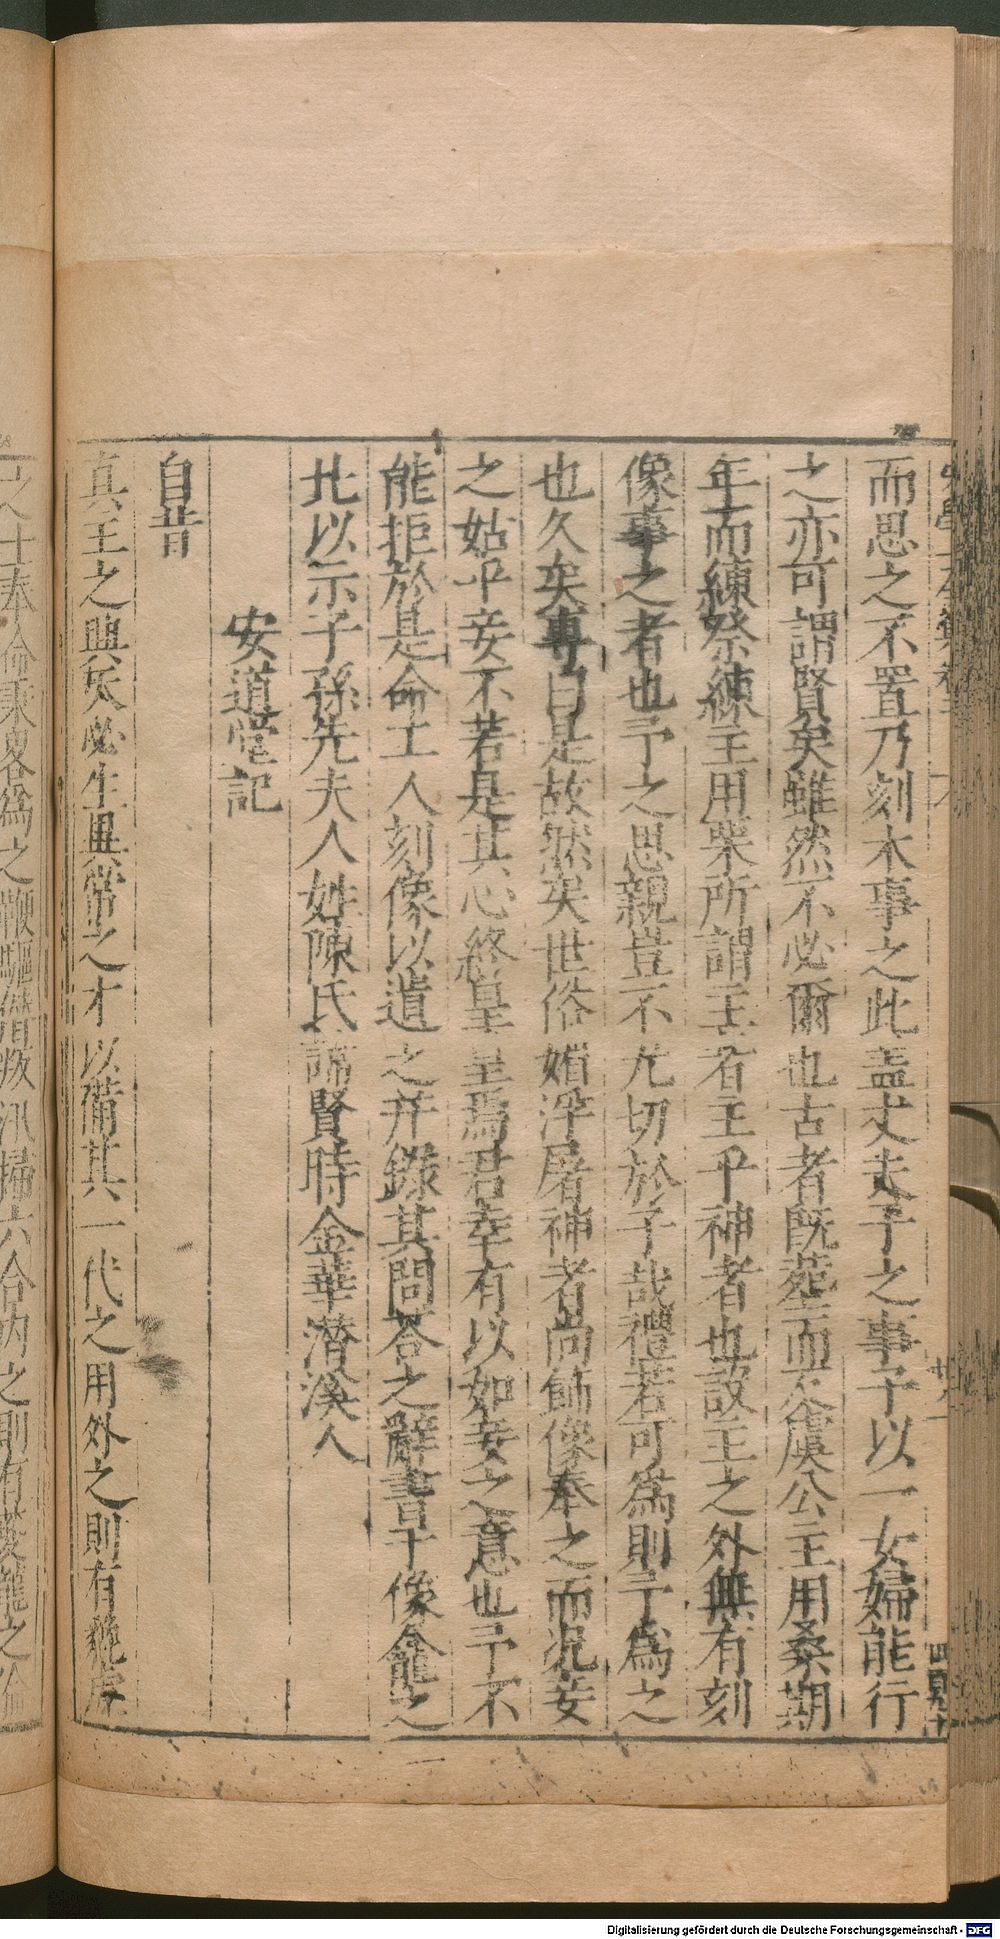 而思之不置乃刻木事之此盖丈夫子之事子以一女婦能行
之亦可謂賢矣雖然不必爾也古者既葬而不虞公主用桑期
年而練祭練主用栗所謂主者主乎神者也設主之外無有刻
像事之者也予之思親豈不尤切於子哉禮若可為則予為之
也久矣專曰是故然矣世俗媚浮屠神者尚飾像奉之而況妾
之姑乎妾不若是其心終皇皇焉君幸有以如妾之意也予不
能拒於是命工人刻像以遺之并錄其問答之辭書于像龕之
北以示子孫先夫人姓陳氏諱賢時金華潛溪人
安道堂記
自昔
真王之興矣必生異常之才以備其一代之用外之則有
之士奉命秉為之鞭驅僭叛汛掃六合内之則有夔龍之倫
四百九十
Digitalisierung gefördert durch die Deutsche Forschungsgemeinschaft - DFG